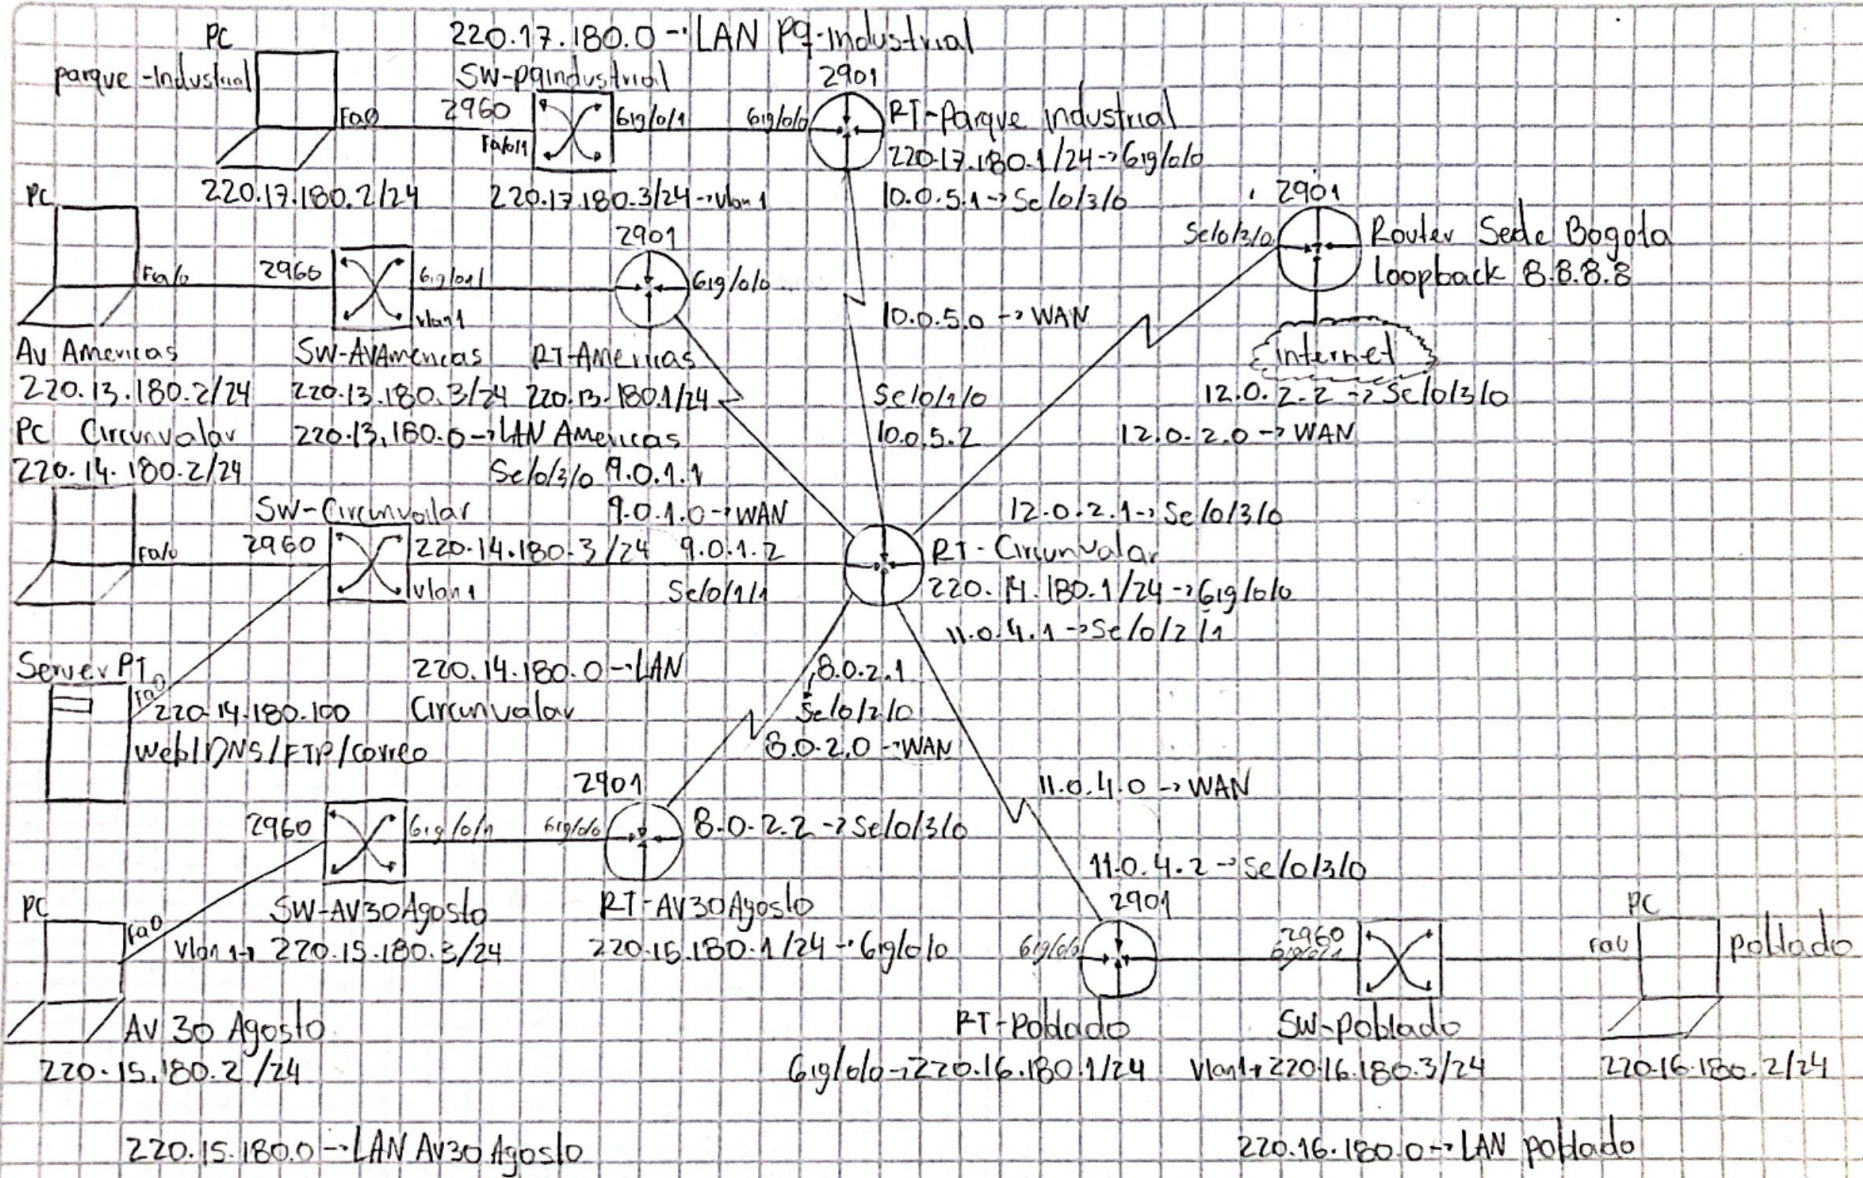 PC
parque-Industrial
220.17.180.0→LAN Pq-Industrial
SW-pqindustrial
2901
Fa0
2960
Fa/0/1
Gig/0/1
Gig/0/0
RT-Parque industrial
220.17.180.1/24→Gig/0/0
220.17.180.2/24
220.17.180.3/24→vlan1
10.0.5.1→Se/0/3/0
PC
Fa/0
2960
Gig/0/1
vlan1
2901
Gig/0/0
2901
Se/0/3/0
Router Sede Bogota
loopback 8.8.8.8
10.0.5.0→WAN
internet
Av Americas
SW-AVAmericas
RT-Americas
220.13.180.2/24
220.13.180.3/24
220.13.180.1/24
Se/0/1/0
12.0.2.2→Se/0/3/0
PC Circunvalar
220.13.180.0→LAN Americas
10.0.5.2
12.0.2.0→WAN
220.14.180.2/24
Se/0/3/0 9.0.1.1
SW-Circunvalar
9.0.1.0→WAN
12.0.2.1→Se/0/3/0
Fa/0
2960
220.14.180.3/24
9.0.1.2
RT-Circunvalar
vlan1
Se/0/1/1
220.14.180.1/24→Gig/0/0
11.0.4.1→Se/0/2/1
Server PT
Fa0
220.14.180.0→LAN
8.0.2.1
220.14.180.100
Circunvalar
Se/0/2/0
web/DNS/FTP/correo
8.0.2.0→WAN
2901
11.0.4.0→WAN
2960
Gig/0/1
Gig/0/0
8.0.2.2→Se/0/3/0
11.0.4.2→Se/0/3/0
PC
Fa0
SW-AV30Agosto
RT-AV30Agosto
2901
PC
Vlan1→220.15.180.3/24
220.15.180.1/24→Gig/0/0
Gig/0/0
2960
Gig/0/1
Fa0
poblado
Av 30 Agosto
RT-Poblado
SW-poblado
220.15.180.2/24
Gig/0/0→220.16.180.1/24
Vlan1→220.16.180.3/24
220.16.180.2/24
220.15.180.0→LAN AV30Agosto
220.16.180.0→LAN poblado